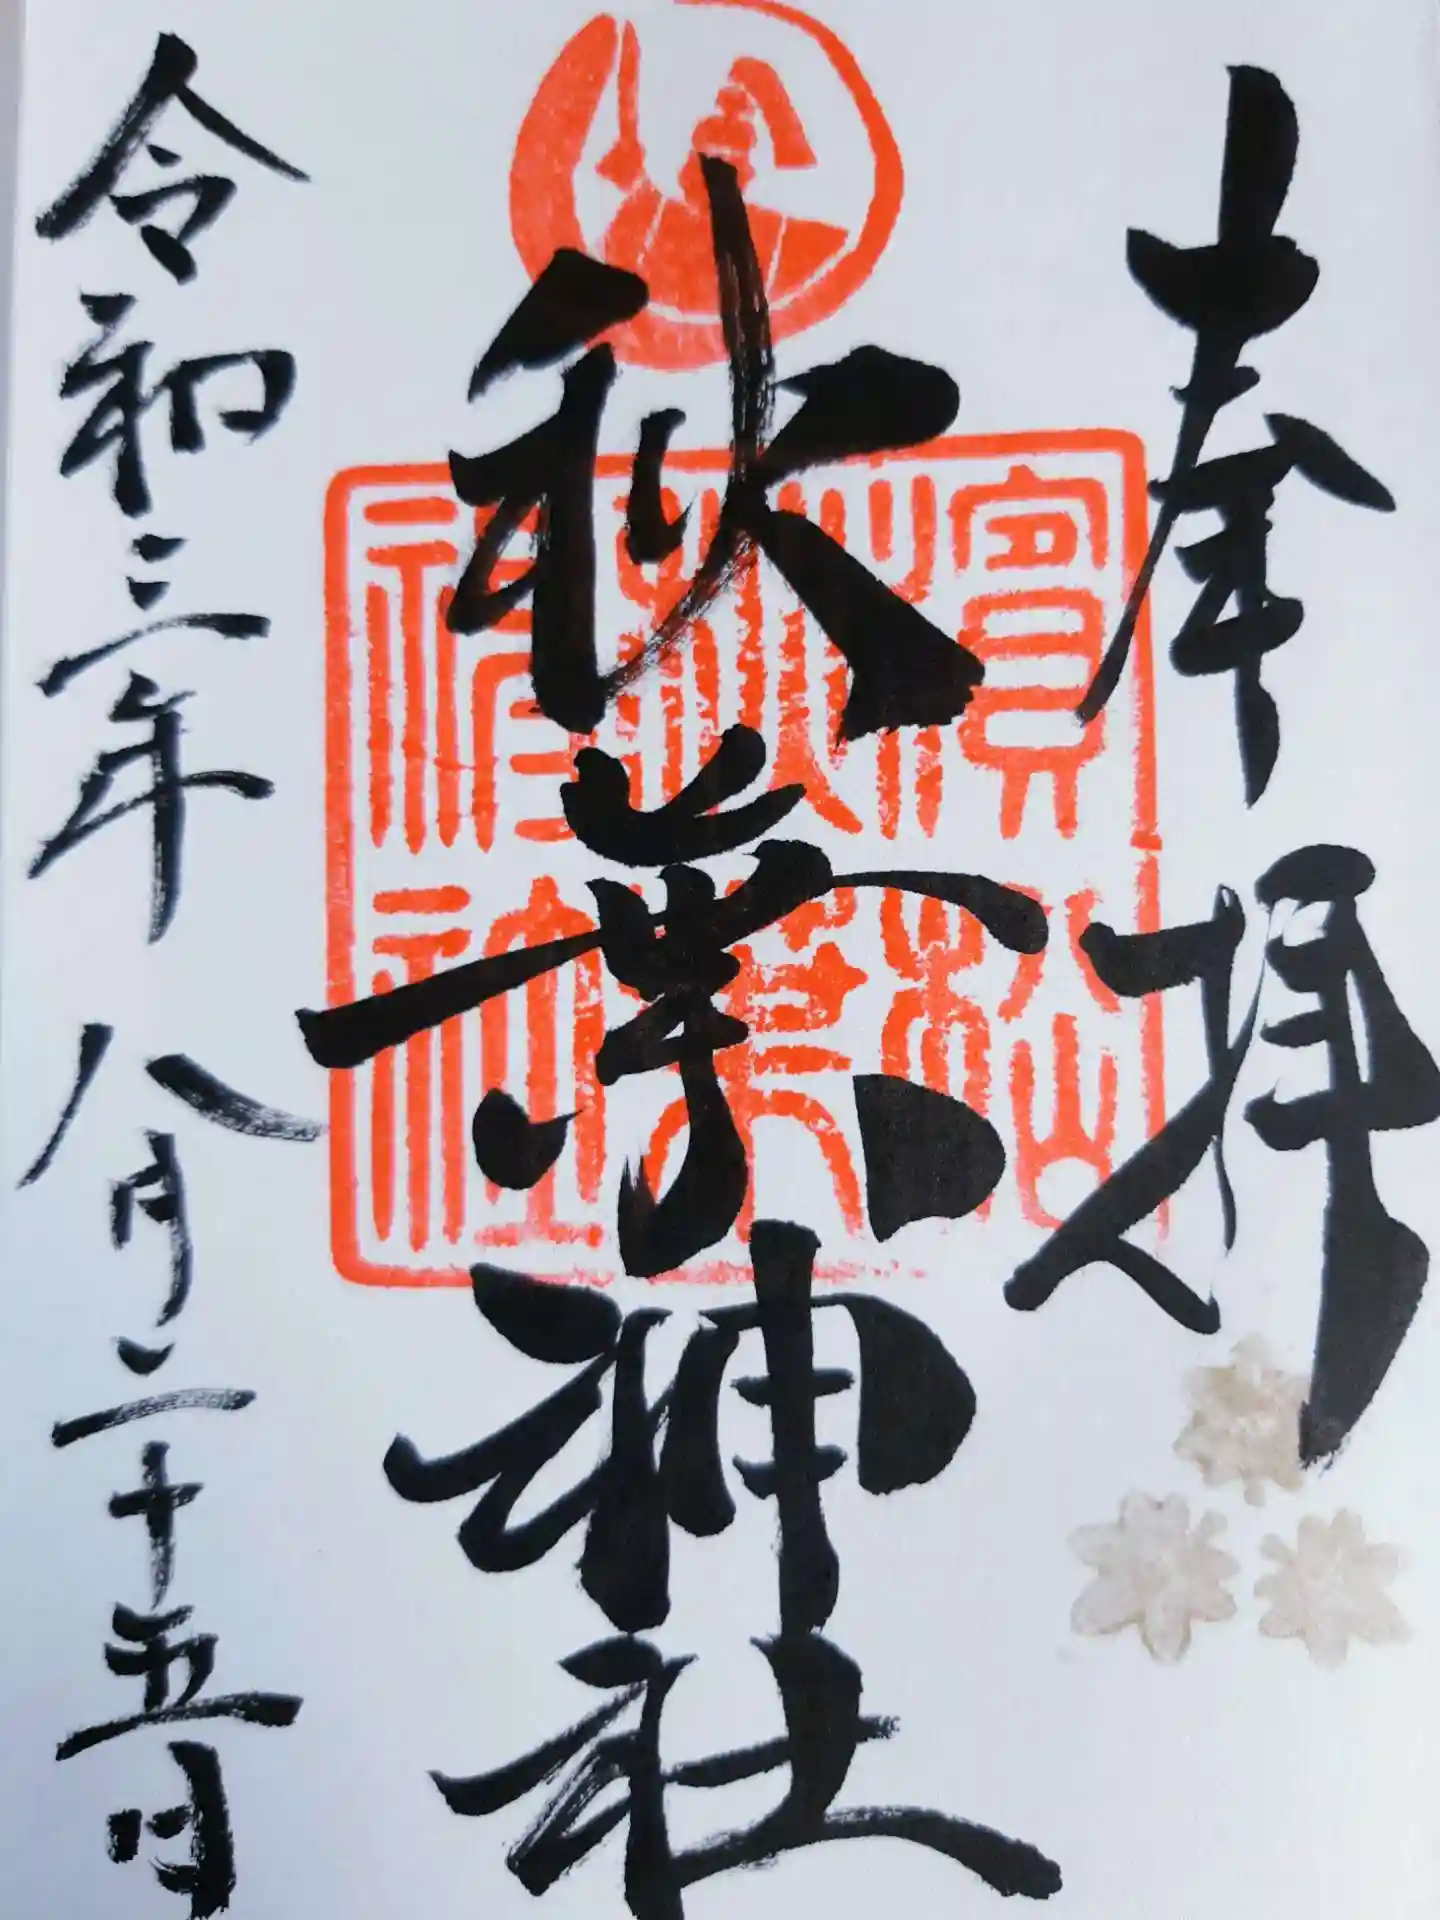 奉拝
秋葉神社
濱松
秋葉
神社
令和三年 八月二十五日